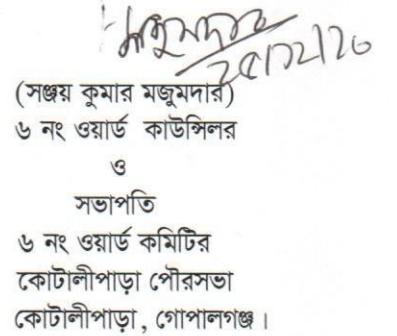 মজুমদার
২৫/১২/২০
(সঞ্জয় কুমার মজুমদার)
৬ নং ওয়ার্ড কাউন্সিলর
ও
সভাপতি
৬ নং ওয়ার্ড কমিটির
কোটালীপাড়া পৌরসভা
কোটালীপাড়া, গোপালগঞ্জ।